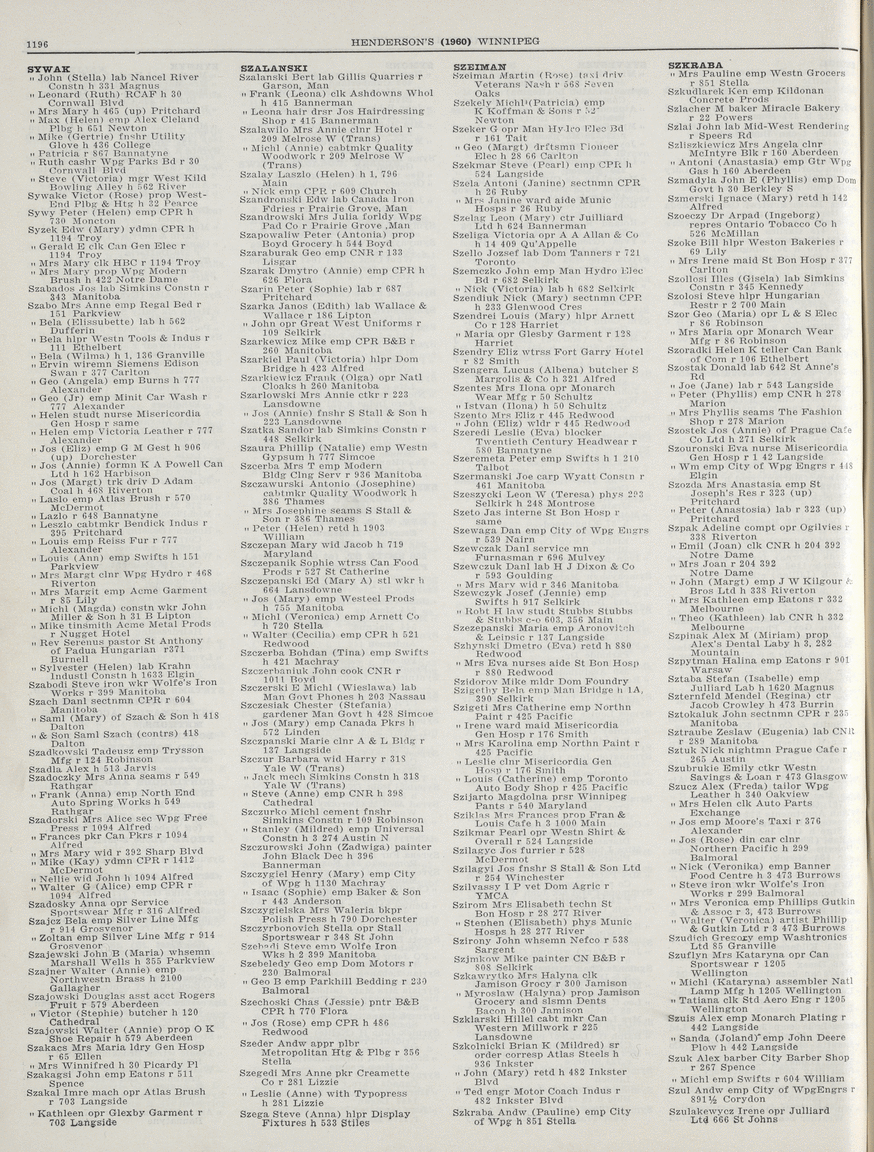 1196
HENDERSON'S (1960) WINNIPEG
SYWAK
" John (Stella) lab Nancel River
Constn h 331 Magnus
" Leonard (Ruth) RCAF h 30
Cornwall Blvd
" Mrs Mary h 465 (up) Pritchard
" Max (Helen) emp Alex Cleland
Plbg h 651 Newton
" Mike (Gertrie) fnshr Utility
Glove h 436 College
" Patricia r 867 Bannatyne
" Ruth cashr Wpg Parks Bd r 30
Cornwall Blvd
" Steve (Victoria) mgr West Kild
Bowling Alley h 562 River
Sywake Victor (Rose) prop West-
End Plbg & Htg h 32 Pearce
Sywy Peter (Helen) emp CPR h
730 Moncton
Syzek Edw (Mary) ydmn CPR h
1194 Troy
" Gerald E clk Can Gen Elec r
1194 Troy
" Mrs Mary clk HBC r 1194 Troy
" Mrs Mary prop Wpg Modern
Brush h 422 Notre Dame
Szabados Jos lab Simkins Constn r
343 Manitoba
Szabo Mrs Anne emp Regal Bed r
151 Parkview
" Bela (Elissubette) lab h 562
Dufferin
" Bela hlpr Westn Tools & Indus r
111 Ethelbert
" Bela (Wilma) h 1, 136 Granville
" Ervin wiremn Siemens Edison
Swan r 377 Carlton
" Geo (Angela) emp Burns h 777
Alexander
" Geo (Jr) emp Minit Car Wash r
777 Alexander
" Helen studt nurse Misericordia
Gen Hosp r same
" Helen emp Victoria Leather r 777
Alexander
" Jos (Eliz) emp G M Gest h 906
(up) Dorchester
" Jos (Annie) formn K A Powell Can
Ltd h 162 Harbison
" Jos (Margt) trk driv D Adam
Coal h 468 Riverton
" Laslo emp Atlas Brush r 570
McDermot
" Lazlo r 648 Bannatyne
" Leszlo cabtmkr Bendick Indus r
395 Pritchard
" Louis emp Reiss Fur r 777
Alexander
" Louis (Ann) emp Swifts h 151
Parkview
" Mrs Margt clnr Wpg Hydro r 468
Riverton
" Mrs Margit emp Acme Garment
r 85 Lily
" Michl (Magda) constn wkr John
Miller & Son h 31 B Lipton
" Mike tinsmith Acme Metal Prods
r Nugget Hotel
" Rev Serenus pastor St Anthony
of Padua Hungarian r371
Burnell
" Sylvester (Helen) lab Krahn
Industl Constn h 1633 Elgin
Szabodi Steve iron wkr Wolfe's Iron
Works r 399 Manitoba
Szach Danl sectnmn CPR r 604
Manitoba
" Saml (Mary) of Szach & Son h 418
Dalton
" & Son Saml Szach (contrs) 418
Dalton
Szadkowski Tadeusz emp Trysson
Mfg r 124 Robinson
Szadla Alex h 513 Jarvis
Szadoczky Mrs Anna seams r 549
Rathgar
" Frank (Anna) emp North End
Auto Spring Works h 549
Rathgar
Szadorski Mrs Alice sec Wpg Free
Press r 1094 Alfred
" Frances pkr Can Pkrs r 1094
Alfred
" Mrs Mary wid r 392 Sharp Blvd
" Mike (Kay) ydmn CPR r 1412
McDermot
" Nellie wid John h 1094 Alfred
" Walter G (Alice) emp CPR r
1094 Alfred
Szadosky Anna opr Service
Sportswear Mfg r 316 Alfred
Szajcz Bela emp Silver Line Mfg
r 914 Grosvenor
" Zoltan emp Silver Line Mfg r 914
Grosvenor
Szajewski John B (Maria) whsemn
Marshall Wells h 355 Parkview
Szajner Walter (Annie) emp
Northwestn Brass h 2100
Gallagher
Szajowski Douglas asst acct Rogers
Fruit r 579 Aberdeen
" Victor (Stephie) butcher h 120
Cathedral
Szajowski Walter (Annie) prop O K
Shoe Repair h 579 Aberdeen
Szakacs Mrs Maria ldry Gen Hosp
r 65 Ellen
" Mrs Winnifred h 30 Picardy Pl
Szakagsi John emp Eatons r 511
Spence
Szakal Imre mach opr Atlas Brush
r 703 Langside
" Kathleen opr Glexby Garment r
703 Langside
SZALANSKI
Szalanski Bert lab Gillis Quarries r
Garson, Man
" Frank (Leona) clk Ashdowns Whol
h 415 Bannerman
" Leona hair drsr Jos Hairdressing
Shop r 415 Bannerman
Szalawilo Mrs Annie clnr Hotel r
209 Melrose W (Trans)
" Michl (Annie) cabtmkr Quality
Woodwork r 209 Melrose W
(Trans)
Szalay Laszlo (Helen) h 1, 796
Main
" Nick emp CPR r 609 Church
Szandronski Edw lab Canada Iron
Fdries r Prairie Grove, Man
Szandrowski Mrs Julia forldy Wpg
Pad Co r Prairie Grove ,Man
Szapowaliw Peter (Antonia) prop
Boyd Grocery h 544 Boyd
Szaraburak Geo emp CNR r 133
Lisgar
Szarak Dmytro (Annie) emp CPR h
626 Flora
Szarin Peter (Sophie) lab r 687
Pritchard
Szarka Janos (Edith) lab Wallace &
Wallace r 186 Lipton
" John opr Great West Uniforms r
109 Selkirk
Szarkewicz Mike emp CPR B&B r
260 Manitoba
Szarkiel Paul (Victoria) hlpr Dom
Bridge h 423 Alfred
Szarkiewicz Frank (Olga) opr Natl
Cloaks h 260 Manitoba
Szarlowski Mrs Annie ctkr r 223
Lansdowne
" Jos (Annie) fnshr S Stall & Son h
223 Lansdowne
Szatka Sandor lab Simkins Constn r
448 Selkirk
Szaura Phillip (Natalie) emp Westn
Gypsum h 777 Simcoe
Szcerba Mrs T emp Modern
Bldg Clng Serv r 936 Manitoba
Szczawurski Antonio (Josephine)
cabtmkr Quality Woodwork h
386 Thames
" Mrs Josephine seams S Stall &
Son r 386 Thames
" Peter (Helen) retd h 1903
William
Szczepan Mary wid Jacob h 719
Maryland
Szczepanik Sophie wtrss Can Food
Prods r 527 St Catherine
Szczepanski Ed (Mary A) stl wkr h
664 Lansdowne
" Jos (Mary) emp Westeel Prods
h 755 Manitoba
" Michl (Veronica) emp Arnett Co
h 720 Stella
" Walter (Cecilia) emp CPR h 521
Redwood
Szczerba Bohdan (Tina) emp Swifts
h 421 Machray
Szczerbaniuk John cook CNR r
1011 Boyd
Szczerski E Michl (Wieslawa) lab
Man Govt Phones h 203 Nassau
Szczesiak Chester (Stefania)
gardener Man Govt h 428 Simcoe
" Jos (Mary) emp Canada Pkrs h
572 Linden
Szczpanski Marie clnr A & L Bldg r
137 Langside
Szczur Barbara wid Harry r 318
Yale W (Trans)
" Jack mech Simkins Constn h 318
Yale W (Trans)
" Steve (Anne) emp CNR h 398
Cathedral
Szczurko Michl cement fnshr
Simkins Constn r 109 Robinson
" Stanley (Mildred) emp Universal
Constn h 3 274 Austin N
Szczurowski John (Zadwiga) painter
John Black Dec h 396
Bannerman
Szczygiel Henry (Mary) emp City
of Wpg h 1130 Machray
" Isaac (Sophie) emp Baker & Son
r 443 Anderson
Szczygielska Mrs Waleria bkpr
Polish Press h 790 Dorchester
Szczyrbonvich Stella opr Stall
Sportswear r 348 St John
Szebodi Steve emp Wolfe Iron
Wks h 2 399 Manitoba
Szebeledy Geo emp Dom Motors r
230 Balmoral
" Geo B emp Parkhill Bedding r 230
Balmoral
Szechoski Chas (Jessie) pntr B&B
CPR h 770 Flora
" Jos (Rose) emp CPR h 486
Redwood
Szeder Andw appr plbr
Metropolitan Htg & Plbg r 356
Stella
Szegedi Mrs Anne pkr Creamette
Co r 281 Lizzie
" Leslie (Anne) with Typopress
h 281 Lizzie
Szega Steve (Anna) hlpr Display
Fixtures h 533 Stiles
SZEIMAN
Szeiman Martin (Rose) taxi driv
Veterans Nash r 568 Seven
Oaks
Szekely Michl (Patricia) emp
K Koffman & Sons r 52
Newton
Szeker G opr Man Hydro Elec Bd
r 161 Tait
" Geo (Margt) drftsmn Pioneer
Elec h 28 66 Carlton
Szekmar Steve (Pearl) emp CPR h
524 Langside
Szela Antoni (Janine) sectnmn CPR
h 26 Ruby
" Mrs Janine ward aide Munic
Hosps r 26 Ruby
Szelag Leon (Mary) ctr Juilliard
Ltd h 624 Bannerman
Szeliga Victoria opr A A Allan & Co
h 14 409 Qu'Appelle
Szello Jozsef lab Dom Tanners r 721
Toronto
Szemczko John emp Man Hydro Elec
Bd r 682 Selkirk
" Nick (Victoria) lab h 682 Selkirk
Szendiuk Nick (Mary) sectnmn CPR
h 233 Glenwood Cres
Szendrei Louis (Mary) hlpr Arnett
Co r 128 Harriet
" Maria opr Glesby Garment r 128
Harriet
Szendry Eliz wtrss Fort Garry Hotel
r 82 Smith
Szengera Lucus (Albena) butcher S
Margolis & Co h 321 Alfred
Szentes Mrs Ilona opr Monarch
Wear Mfg r 50 Schultz
" Istvan (Ilona) h 50 Schultz
Szento Mrs Eliz r 445 Redwood
" John (Eliz) wldr r 445 Redwood
Szeredi Leslie (Eva) blocker
Twentieth Century Headwear r
580 Bannatyne
Szeremeta Peter emp Swifts h 1 210
Talbot
Szermanski Joe carp Wyatt Constn r
461 Manitoba
Szeszycki Leon W (Teresa) phys 293
Selkirk h 248 Montrose
Szeto Jas interne St Bon Hosp r
same
Szewaga Dan emp City of Wpg Engrs
r 539 Nairn
Szewczak Danl service mn
Furnasman r 696 Mulvey
Szewczuk Danl lab H J Dixon & Co
r 593 Goulding
" Mrs Mary wid r 346 Manitoba
Szewczyk Josef (Jennie) emp
Swifts h 917 Selkirk
" Robt H law studt Stubbs Stubbs
& Stubbs c-o 603, 356 Main
Szezepanski Maria emp Aronovitch
& Leipsic r 137 Langside
Szhynski Dmetro (Eva) retd h 880
Redwood
" Mrs Eva nurses aide St Bon Hosp
r 880 Redwood
Szidorov Mike mldr Dom Foundry
Szigethy Bela emp Man Bridge h 1A,
390 Selkirk
Szigeti Mrs Catherine emp Northn
Paint r 425 Pacific
" Irene ward maid Misericordia
Gen Hosp r 176 Smith
" Mrs Karolina emp Northn Paint r
425 Pacific
" Leslie clnr Misericordia Gen
Hosp r 176 Smith
" Louis (Catherine) emp Toronto
Auto Body Shop r 425 Pacific
Szijarto Magdolna prsr Winnipeg
Pants r 540 Maryland
Sziklas Mrs Frances prop Fran &
Louis Cafe h 3 1000 Main
Szikmar Pearl opr Westn Shirt &
Overall r 524 Langside
Szilagyc Jos furrier r 528
McDermot
Szilagyi Jos fnshr S Stall & Son Ltd
r 254 Winchester
Szilvassy I P vet Dom Agric r
YMCA
Szirom Mrs Elisabeth techn St
Bon Hosp r 28 277 River
" Stephen (Elisabeth) phys Munic
Hosps h 28 277 River
Szirony John whsemn Nefco r 538
Sargent
Szjmkow Mike painter CN B&B r
808 Selkirk
Szkawrytko Mrs Halyna clk
Jamison Grocy r 300 Jamison
" Myroslaw (Halyna) prop Jamison
Grocery and slsmn Dents
Bacon h 300 Jamison
Szklarski Hillel cabt mkr Can
Western Millwork r 225
Lansdowne
Szkolnicki Brian K (Mildred) sr
order corresp Atlas Steels h
936 Inkster
" John (Mary) retd h 482 Inkster
Blvd
" Ted engr Motor Coach Indus r
482 Inkster Blvd
Szkraba Andw (Pauline) emp City
of Wpg h 851 Stella
SZKRABA
" Mrs Pauline emp Westn Grocers
r 851 Stella
Szkudlarek Ken emp Kildonan
Concrete Prods
Szlacher M baker Miracle Bakery
r 22 Powers
Szlai John lab Mid-West Rendering
r Speers Rd
Szliszkiewicz Mrs Angela clnr
McIntyre Blk r 160 Aberdeen
" Antoni (Anastasia) emp Gtr Wpg
Gas h 160 Aberdeen
Szmadyla John E (Phyllis) emp Dom
Govt h 30 Berkley S
Szmerski Ignace (Mary) retd h 142
Alfred
Szoeczy Dr Arpad (Ingeborg)
repres Ontario Tobacco Co h
526 McMillan
Szoke Bill hlpr Weston Bakeries r
69 Lily
" Mrs Irene maid St Bon Hosp r 377
Carlton
Szollosi Illes (Gisela) lab Simkins
Constn r 345 Kennedy
Szolosi Steve hlpr Hungarian
Restr r 2 700 Main
Szor Geo (Maria) opr L & S Elec
r 86 Robinson
" Mrs Maria opr Monarch Wear
Mfg r 86 Robinson
Szoradki Helen K teller Can Bank
of Com r 106 Ethelbert
Szostak Donald lab 642 St Anne's
Rd
" Joe (Jane) lab r 543 Langside
" Peter (Phyllis) emp CNR h 278
Marion
" Mrs Phyllis seams The Fashion
Shop r 278 Marion
Szostek Jos (Annie) of Prague Cafe
Co Ltd h 271 Selkirk
Szouronski Eva nurse Misericordia
Gen Hosp r 1 42 Langside
" Wm emp City of Wpg Engrs r 448
Elgin
Szozda Mrs Anastasia emp St
Joseph's Res r 323 (up)
Pritchard
" Peter (Anastosia) lab r 323 (up)
Pritchard
Szpak Adeline compt opr Ogilvies r
338 Riverton
" Emil (Joan) clk CNR h 204 392
Notre Dame
" Mrs Joan r 204 392
Notre Dame
" John (Margt) emp J W Kilgour &
Bros Ltd h 338 Riverton
" Mrs Kathleen emp Eatons r 332
Melbourne
" Theo (Kathleen) lab CNR h 332
Melbourne
Szpinak Alex M (Miriam) prop
Alex's Dental Laby h 3, 282
Mountain
Szpytman Halina emp Eatons r 901
Warsaw
Sztaba Stefan (Isabelle) emp
Julliard Lab h 1620 Magnus
Szternfeld Mendel (Regina) ctr
Jacob Crowley h 473 Burrin
Sztokaluk John sectnmn CPR r 235
Manitoba
Sztraube Zeslaw (Eugenia) lab CNR
r 289 Manitoba
Sztuk Nick nightmn Prague Cafe r
265 Austin
Szubrukie Emily ctkr Westn
Savings & Loan r 473 Glasgow
Szucz Alex (Freda) tailor Wpg
Leather h 340 Oakview
" Mrs Helen clk Auto Parts
Exchange
" Jos emp Moore's Taxi r 376
Alexander
" Jos (Rose) din car clnr
Northern Pacific h 299
Balmoral
" Nick (Veronika) emp Banner
Food Centre h 3 473 Burrows
" Steve iron wkr Wolfe's Iron
Works r 299 Balmoral
" Mrs Veronica emp Phillips Gutkin
& Assoc r 3, 473 Burrows
" Walter (Veronica) artist Phillip
& Gutkin Ltd r 3 473 Burrows
Szudich Gregory emp Washtronics
Ltd 85 Granville
Szuflyn Mrs Kataryna opr Can
Sportswear r 1205
Wellington
" Michl (Kataryna) assembler Natl
Lamp Mfg h 1205 Wellington
" Tatiana clk Std Aero Eng r 1205
Wellington
Szuis Alex emp Monarch Plating r
442 Langside
" Sanda (Joland) emp John Deere
Plow h 442 Langside
Szuk Alex barber City Barber Shop
r 267 Spence
" Michl emp Swifts r 604 William
Szul Andw emp City of WpgEngrs r
891½ Corydon
Szulakewycz Irene opr Julliard
Ltd 666 St Johns